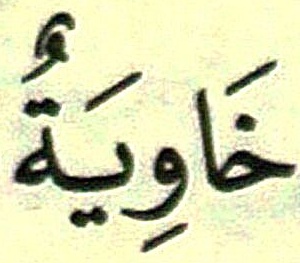 خَاوِيَةٌ